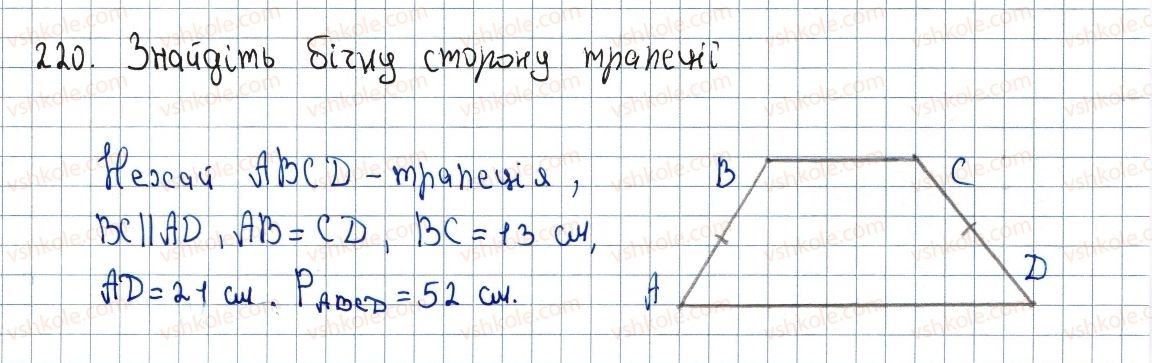 220. Знайдіть бічну сторону трапеції
Нехай ABCD - трапеція,
BC||AD, AB = CD, BC = 13 см,
AD = 21 см. P ABCD = 52 см.
B C
A D
vshkole.com